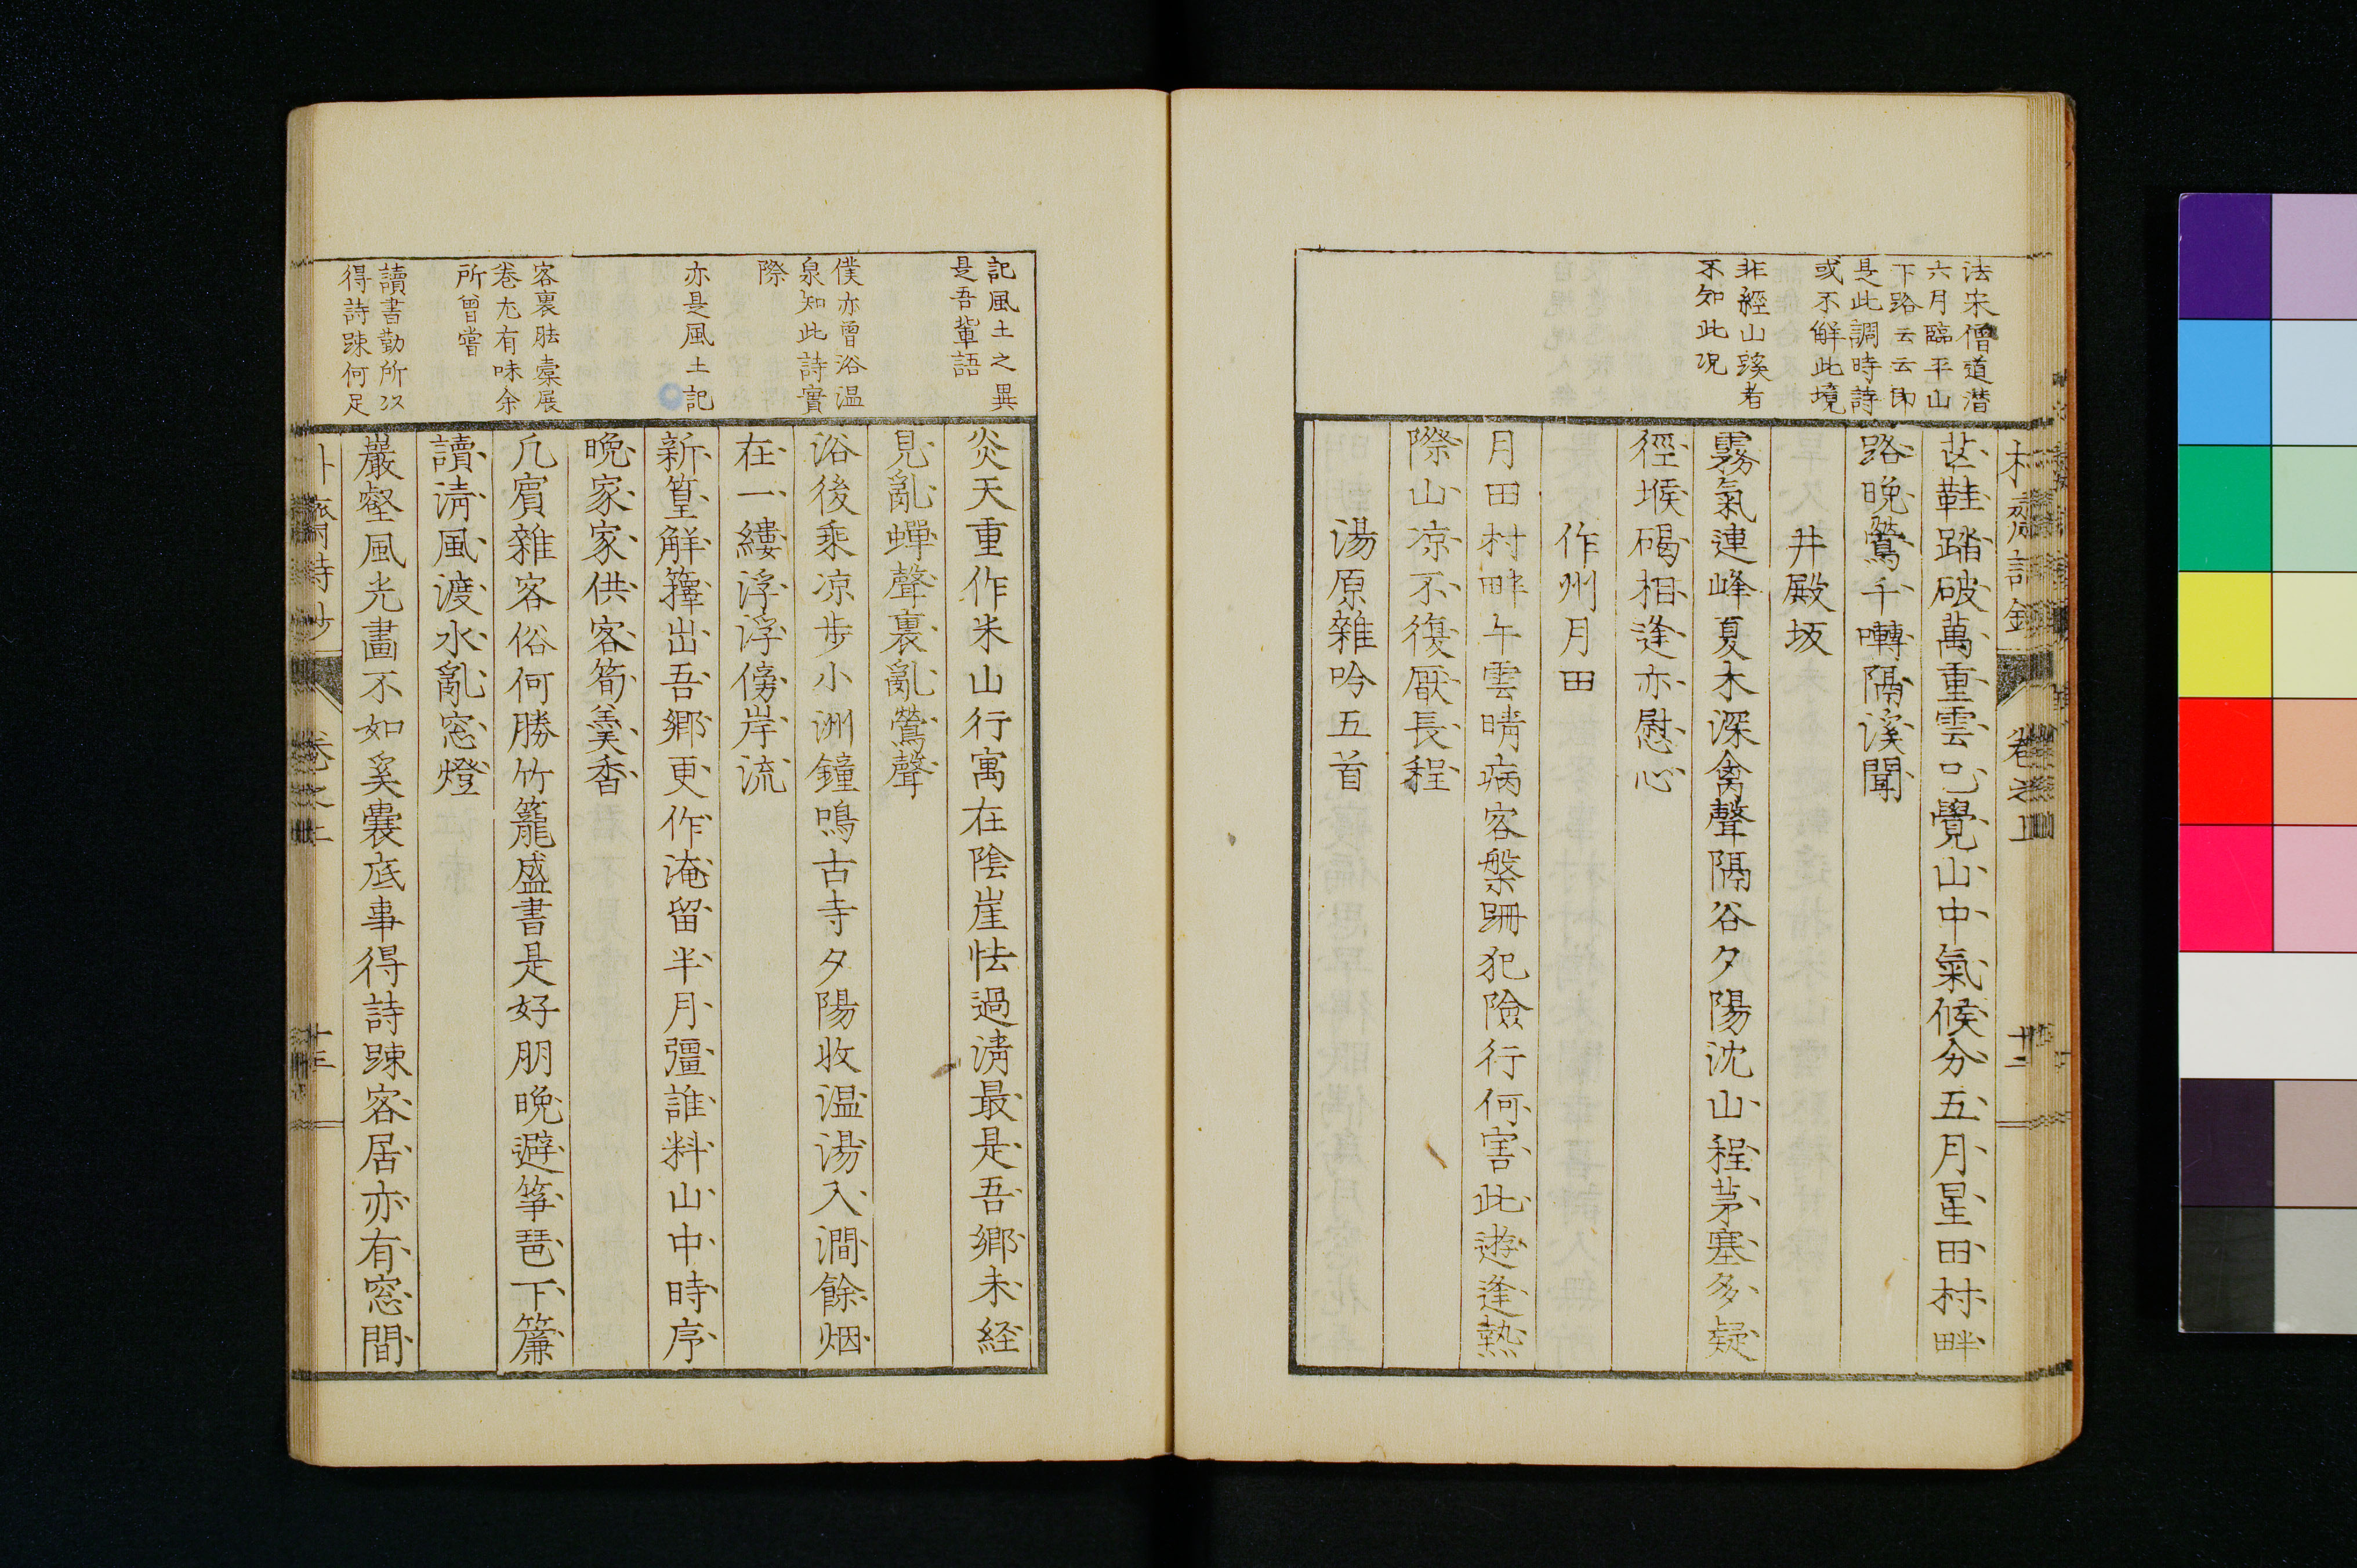 法宋僧道潜
六月臨平山
下路云云即
是此調時詩
或不解此境
非經山蹊者
不知此况
芒鞋踏破萬重雲已覺山中氣候分五月星田村畔
路晚鶯千囀隔溪聞
井殿坂
霧氣連峰夏木深禽聲隔谷夕陽沈山程茅塞多疑
徑堠碣相逢亦慰心
作州月田
月田村畔午雲晴病客槃跚犯險行何害此遊逢熱
際山凉不復厭長程
湯原雜吟五首
卷之上
十二
記風土之異
是吾輩語
僕亦曾浴温
泉知此詩實
際
亦是風土記
客裏胠橐展
卷尤有味余
所曾嘗
讀書勤所以
得詩踈何足
炎天重作米山行寓在陰崖怯過淸最是吾鄉未経
見亂蟬聲裏亂鶯聲
浴後乘凉步小洲鐘鳴古寺夕陽收温湯入澗餘烟
在一縷浮浮傍岸流
新篁解籜出吾鄉更作淹留半月彊誰料山中時序
晚家家供客筍羹香
凡賓雜客俗何勝竹籠盛書是好朋晚避箏琶下簾
讀淸風渡水亂窓燈
巖壑風光畫不如奚囊底事得詩踈客居亦有窓間
卷之上
十三